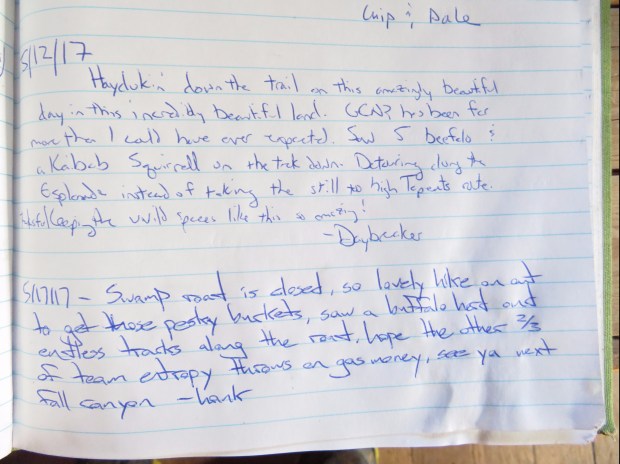 Chip & Dale
5/12/17
Haydukin' down the trail on this amazingly beautiful
day in this incredibly beautiful land. GCNP has been far
more than I could have ever expected. Saw 5 beefalo &
a Kabab Squirrell on the trek down. Detouring along the
Esplande instead of taking the still to high Tapeats route.
Keeping the wild spaces like this so amazing!
-Daybreaker
5/17/17 - Swamp road is closed, so lovely hike on out
to get those pesky buckets, saw a buffalo herd and
endless tracks along the road, hope the other 2/3
of team entropy throws on gas money, see ya next
fall canyon - hank